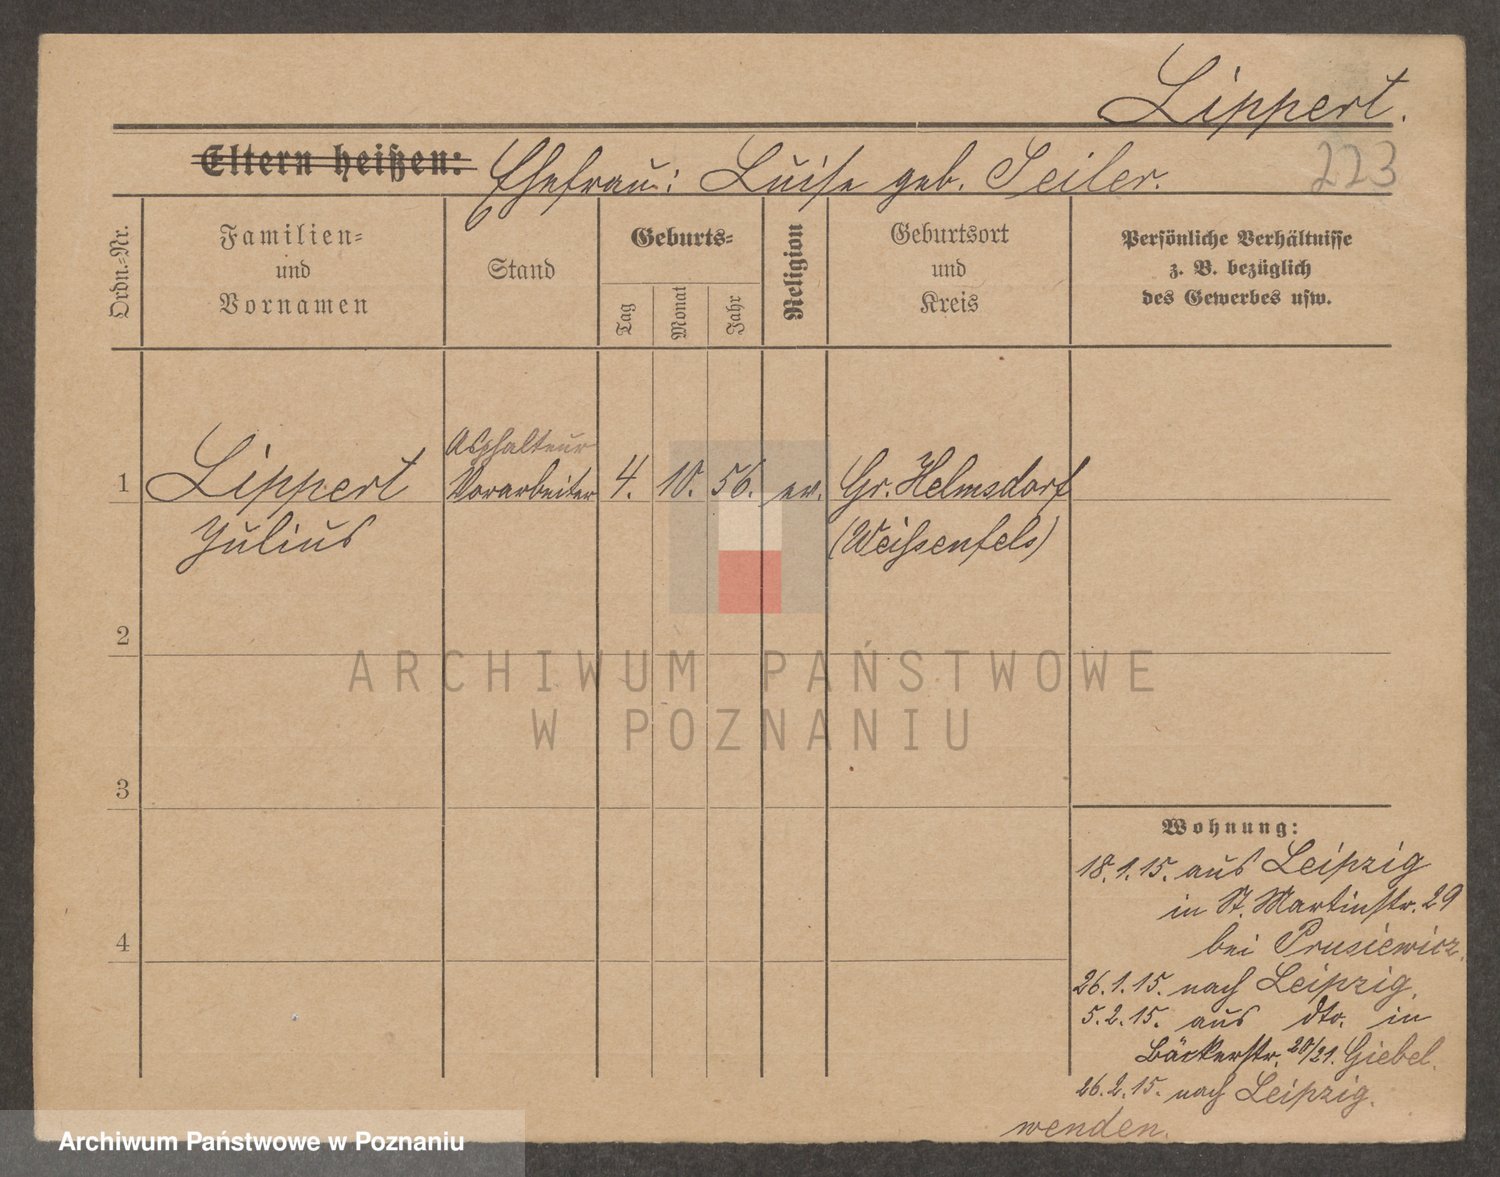 Lippert.
223
Eltern heißen: Ehefrau: Luise geb. Seiler.
Ordn.=Nr.
Familien=
und
Vornamen
Stand
Geburts=
Tag
Monat
Jahr
Religion
Geburtsort
und
Kreis
Persönliche Verhältnisse
z. B. bezüglich
des Gewerbes usw.
Asphalteur
1 Lippert Vorarbeiter 4. 10. 56. ev. Gr. Helmsdorf
Julius (Weissenfels)
2
ARCHIWUM PAŃSTWOWE
W POZNANIU
3
Wohnung:
18.1.15. aus Leipzig
in St. Martinstr. 29
bei Prusiewicz.
4
26.1.15. nach Leipzig.
5.2.15. aus dto. in
Bäckerstr. 20/21. Giebel.
26.2.15. nach Leipzig.
wenden.
Archiwum Państwowe w Poznaniu